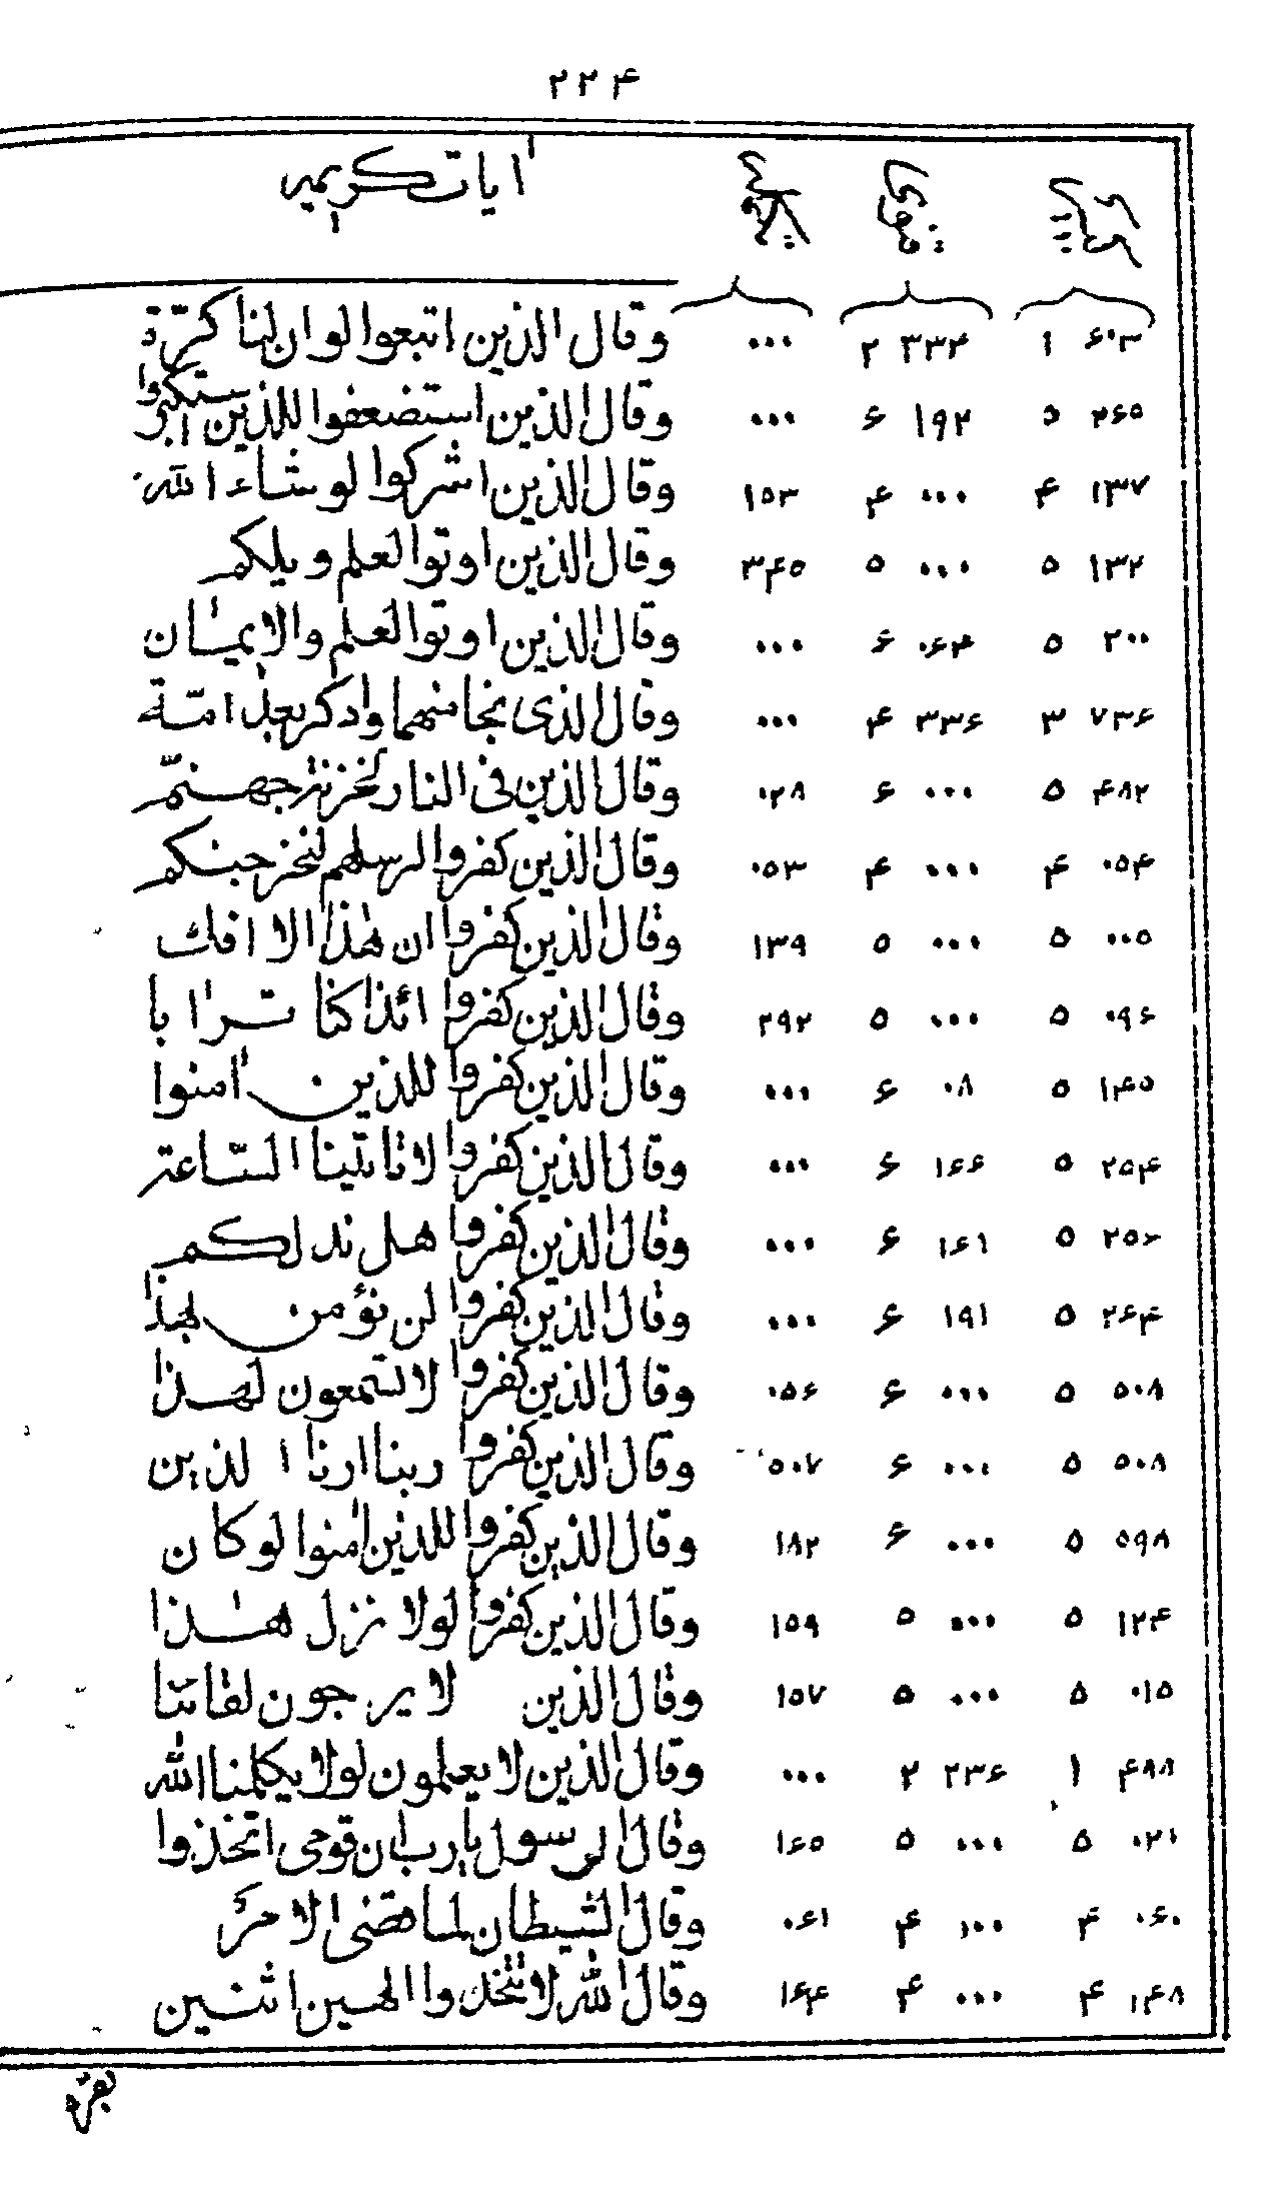 ۲۲۴
اٰیات کریمہ
۶۰۳ ۱ ۳۳۴ ۲ ۰۰۰ وقال الذین اتبعوا لو ان لنا کرّۃ
۲۶۵ ۵ ۱۹۲ ۶ ۰۰۰ وقال الذین استضعفوا للذین استکبروا
۱۳۷ ۴ ۰۰۰ ۴ ۱۵۳ وقال الذین اشرکوا لو شاء اللہ
۱۳۲ ۵ ۰۰۰ ۵ ۳۴۵ وقال الذین اوتوا العلم ویلکم
۲۰۰ ۵ ۰۶۴ ۶ ۰۰۰ وقال الذین اوتوا العلم والایمان
۷۳۶ ۳ ۳۳۶ ۴ ۰۰۰ وقال الذی نجا منھما وادکر بعد امّۃ
۴۸۲ ۵ ۰۰۰ ۶ ۰۲۸ وقال الذین فی النار لخزنۃ جھنّم
۰۵۴ ۴ ۰۰۰ ۴ ۰۵۳ وقال الذین کفروا لرسلھم لنخرجنکم
۰۰۵ ۵ ۰۰۰ ۵ ۱۳۹ وقال الذین کفروا ان ھٰذا الا افک
۰۹۶ ۵ ۰۰۰ ۵ ۲۹۲ وقال الذین کفروا ائذا کنا ترابا
۱۴۵ ۵ ۰۸ ۶ ۰۰۰ وقال الذین کفروا للذین اٰمنوا
۲۵۴ ۵ ۱۶۶ ۶ ۰۰۰ وقال الذین کفروا لا تاتینا السّاعۃ
۲۵۶ ۵ ۱۶۱ ۶ ۰۰۰ وقال الذین کفروا ھل ندلکم
۲۶۴ ۵ ۱۹۱ ۶ ۰۰۰ وقال الذین کفروا لن نؤمن بھذا
۵۰۸ ۵ ۰۰۰ ۶ ۰۵۶ وقال الذین کفروا لا تسمعون لھٰذا
۵۰۸ ۵ ۰۰۰ ۶ ۵۰۷ وقال الذین کفروا ربنا ارنا الذین
۵۹۸ ۵ ۰۰۰ ۶ ۱۸۲ وقال الذین کفروا للذین اٰمنوا لو کان
۱۲۴ ۵ ۰۰۰ ۵ ۱۵۹ وقال الذین کفروا لولا نزل ھٰذا
۰۱۵ ۵ ۰۰۰ ۵ ۱۵۷ وقال الذین لا یرجون لقائنا
۴۸۸ ۱ ۲۳۶ ۲ ۰۰۰ وقال الذین لا یعلمون لولا یکلمنا اللہ
۰۲۱ ۵ ۰۰۰ ۵ ۱۶۵ وقال الرسول یارب ان قومی اتخذوا
۰۶۰ ۴ ۰۰۰ ۴ ۰۶۱ وقال الشیطان لما قضی الامر
۱۴۸ ۴ ۰۰۰ ۴ ۱۶۴ وقال اللہ لا تتخذوا الٰھین اثنین